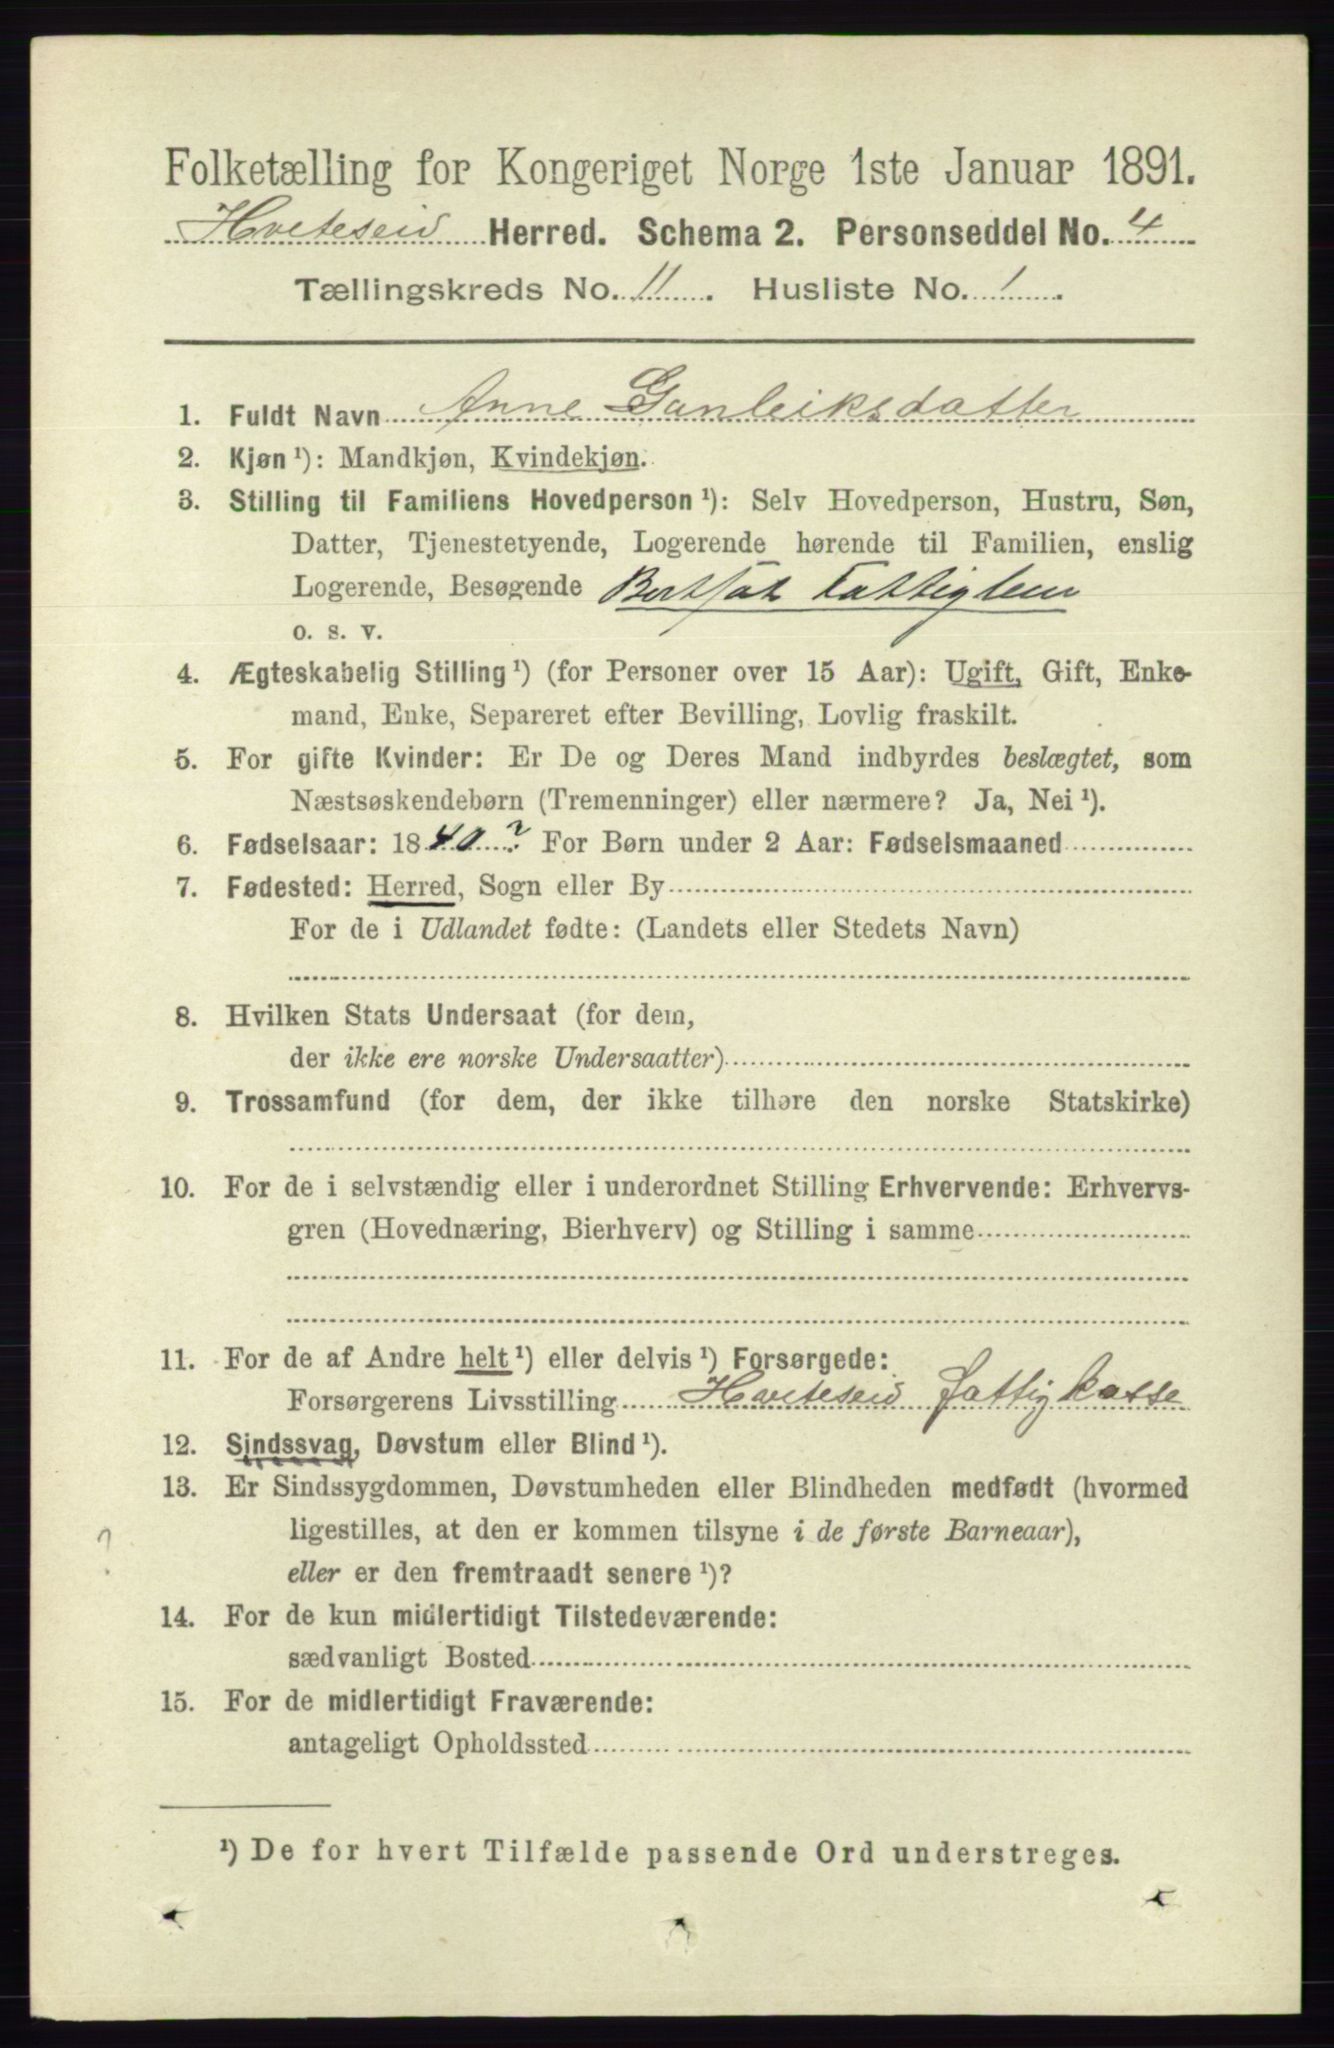 Folketælling for Kongeriget Norge 1ste Januar 1891.
Hviteseid Herred. Schema 2. Personseddel No. 4
Tællingskreds No. 11. Husliste No. 1.
1. Fuldt Navn Anne Gunleiksdatter
2. Kjøn ¹): Mandkjøn, Kvindekjøn.
3. Stilling til Familiens Hovedperson ¹): Selv Hovedperson, Hustru, Søn,
Datter, Tjenestetyende, Logerende hørende til Familien, enslig
Logerende, Besøgende Bortsat Fattiglem
o. s. v.
4. Ægteskabelig Stilling ¹) (for Personer over 15 Aar): Ugift, Gift, Enke-
mand, Enke, Separeret efter Bevilling, Lovlig fraskilt.
5. For gifte Kvinder: Er De og Deres Mand indbyrdes beslægtet, som
Næstsøskendebørn (Tremenninger) eller nærmere? Ja, Nei ¹).
6. Fødselsaar: 1840? For Børn under 2 Aar: Fødselsmaaned
7. Fødested: Herred, Sogn eller By
For de i Udlandet fødte: (Landets eller Stedets Navn)
8. Hvilken Stats Undersaat (for dem,
der ikke ere norske Undersaatter)
9. Trossamfund (for dem, der ikke tilhøre den norske Statskirke)
10. For de i selvstændig eller i underordnet Stilling Erhvervende: Erhvervs-
gren (Hovednæring, Bierhverv) og Stilling i samme
11. For de af Andre helt ¹) eller delvis ¹) Forsørgede:
Forsørgerens Livsstilling Hviteseid Fattigkasse
12. Sindssvag, Døvstum eller Blind ¹).
13. Er Sindssygdommen, Døvstumheden eller Blindheden medfødt (hvormed
? ligestilles, at den er kommen tilsyne i de første Barneaar),
eller er den fremtraadt senere ¹)?
14. For de kun midlertidigt Tilstedeværende:
sædvanligt Bosted
15. For de midlertidigt Fraværende:
antageligt Opholdssted
¹) De for hvert Tilfælde passende Ord understreges.